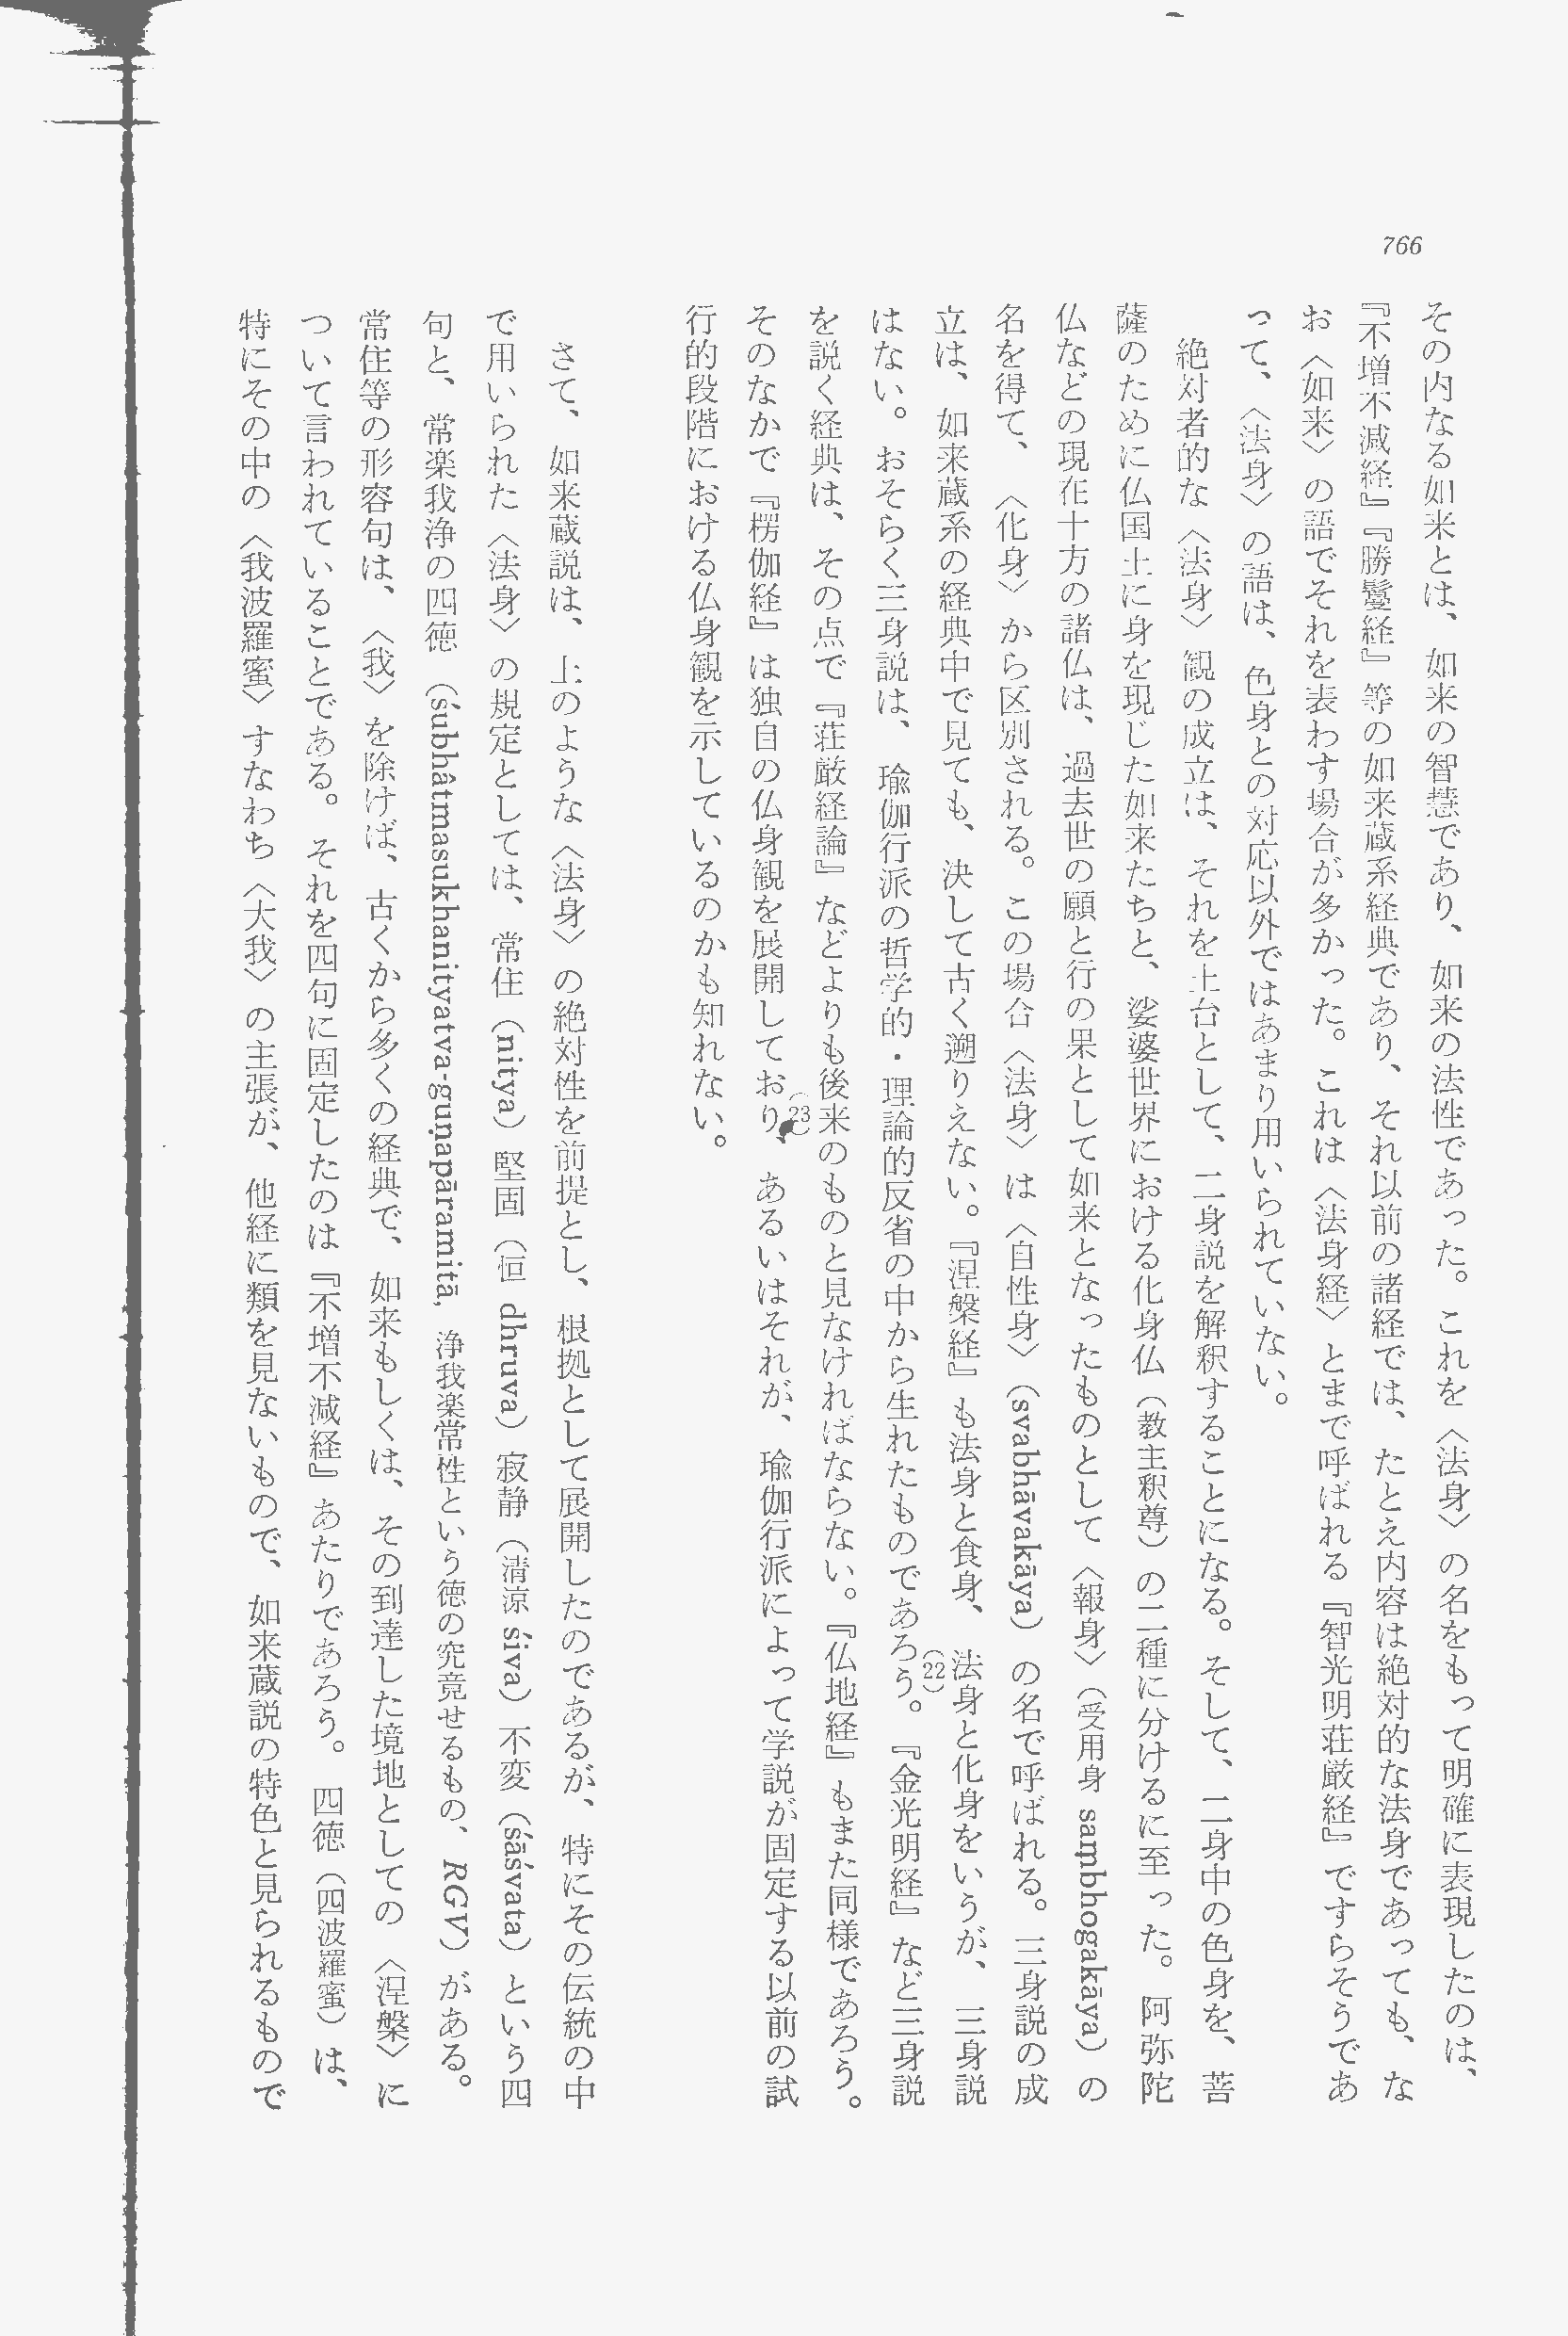 766
その内なる如来とは、如来の智慧であり、如来の法性であった。これを〈法身〉の名をもって明確に表現したのは、
『不増不減経』『勝鬘経』等の如来蔵系経典であり、それ以前の諸経では、たとえ内容は絶対的な法身であっても、な
お〈如来〉の語でそれを表わす場合が多かった。これは〈法身経〉とまで呼ばれる『智光明荘厳経』ですらそうであ
って、〈法身〉の語は、色身との対応以外ではあまり用いられていない。
絶対者的な〈法身〉観の成立は、それを土台として、二身説を解釈することになる。そして、二身中の色身を、菩
薩のために仏国土に身を現じた如来たちと、娑婆世界における化身仏（教主釈尊）の二種に分けるに至った。阿弥陀
仏などの現在十方の諸仏は、過去世の願と行の果として如来となったものとして〈報身〉（受用身 saṃbhogakāya）の
名を得て、〈化身〉から区別される。この場合〈法身〉は〈自性身〉（svabhāvakāya）の名で呼ばれる。三身説の成
立は、如来蔵系の経典中で見ても、決して古く遡りえない。『涅槃経』も法身と食身、法身と化身をいうが、三身説
はない。おそらく三身説は、瑜伽行派の哲学的・理論的反省の中から生れたものであろう（22）。『金光明経』など三身説
を説く経典は、その点で『荘厳経論』などよりも後来のものと見なければならない。『仏地経』もまた同様であろう。
そのなかで『楞伽経』は独自の仏身観を展開しており（23）、あるいはそれが、瑜伽行派によって学説が固定する以前の試
行的段階における仏身観を示しているのかも知れない。
さて、如来蔵説は、上のような〈法身〉の絶対性を前提とし、根拠として展開したのであるが、特にその伝統の中
で用いられた〈法身〉の規定としては、常住（nitya）堅固（恒 dhruva）寂静（清涼 śiva）不変（śāśvata）という四
句と、常楽我浄の四徳（śubhâtmasukhanityatva-guṇapāramitā, 浄我楽常性という徳の究竟せるもの、RGV）がある。
常住等の形容句は、〈我〉を除けば、古くから多くの経典で、如来もしくは、その到達した境地としての〈涅槃〉に
ついて言われていることである。それを四句に固定したのは『不増不減経』あたりであろう。四徳（四波羅蜜）は、
特にその中の〈我波羅蜜〉すなわち〈大我〉の主張が、他経に類を見ないもので、如来蔵説の特色と見られるもので